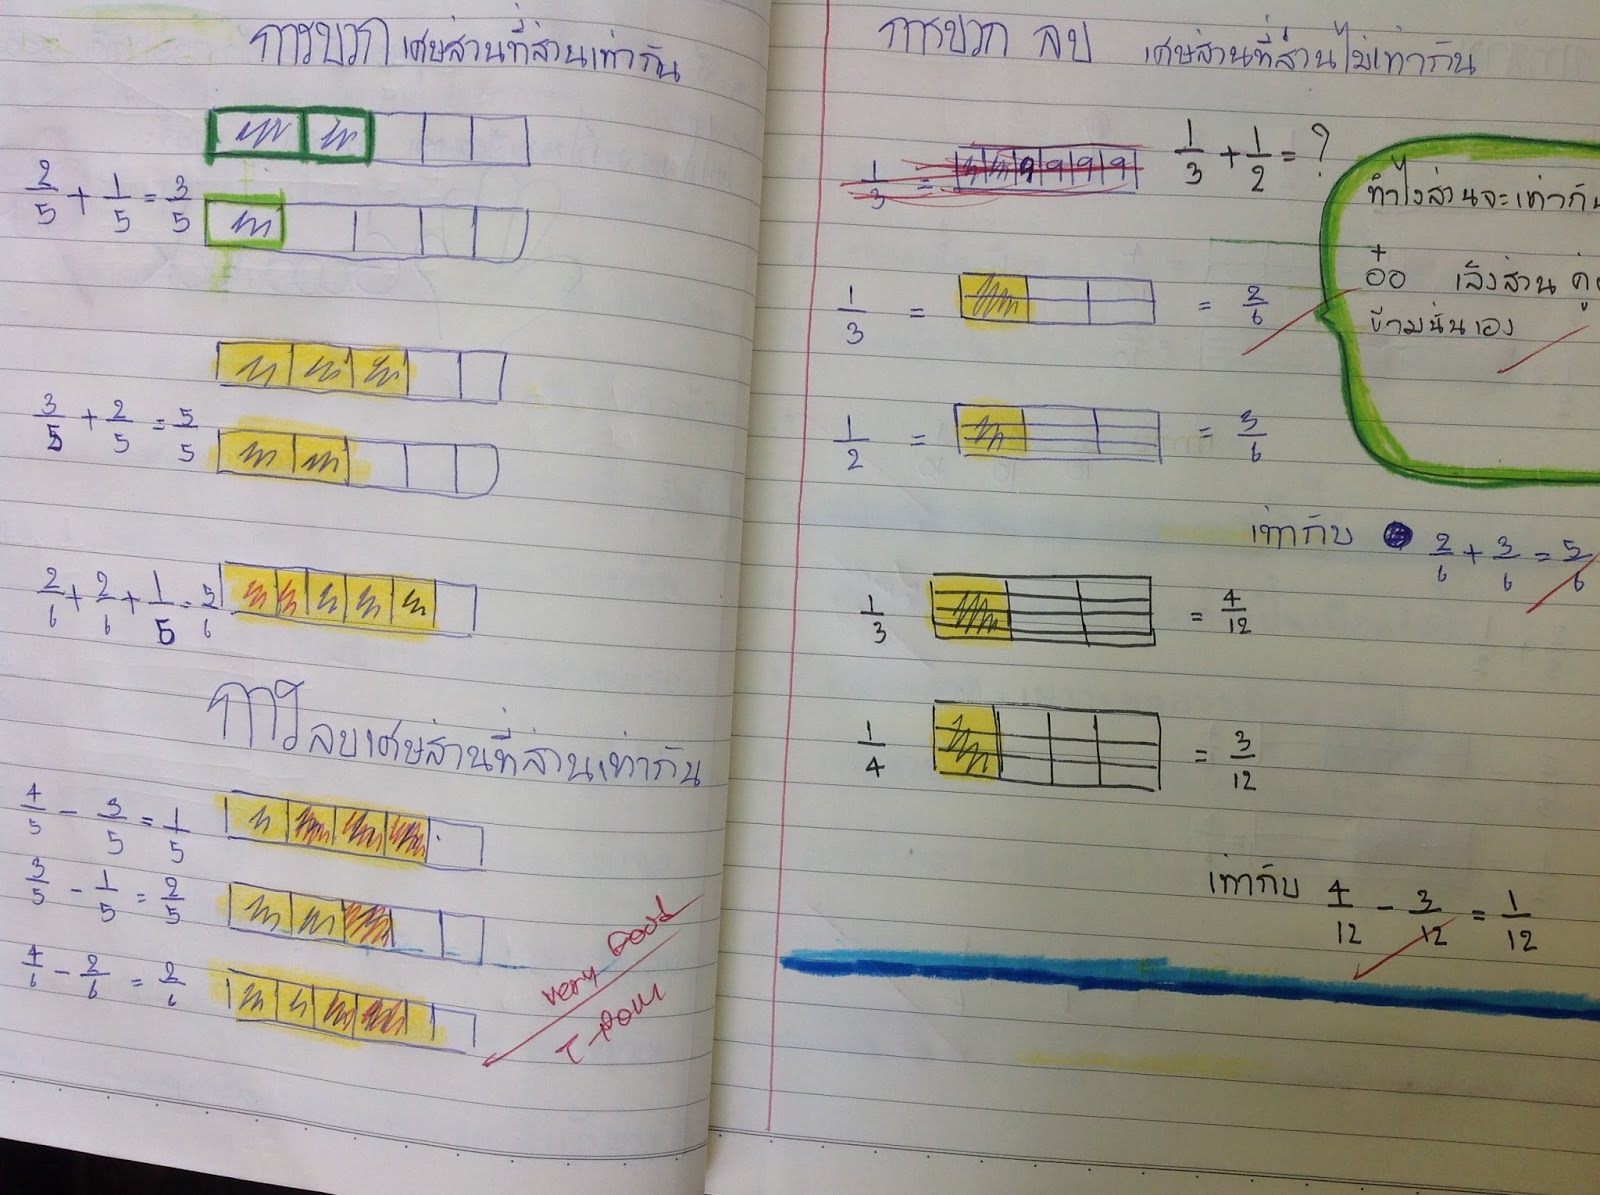 การบวกเศษส่วนที่ส่วนเท่ากัน
2/5 + 1/5 = 3/5
3/5 + 2/5 = 5/5
2/6 + 2/6 + 1/5 = 5/6
การลบเศษส่วนที่ส่วนเท่ากัน
4/5 - 3/5 = 1/5
3/5 - 1/5 = 2/5
4/6 - 2/6 = 2/6
very Good
การบวก ลบ เศษส่วนที่ส่วนไม่เท่ากัน
1/3 =
1/3 + 1/2 = ?
ทำไงส่วนจะเท่ากัน
อ๋อ เล็งส่วน
ข้ามนั่นเอง
1/3 = = 2/6
1/2 = = 3/6
เท่ากับ 2/6 + 3/6 = 5/6
1/3 = 4/12
1/4 = 3/12
เท่ากับ 4/12 - 3/12 = 1/12